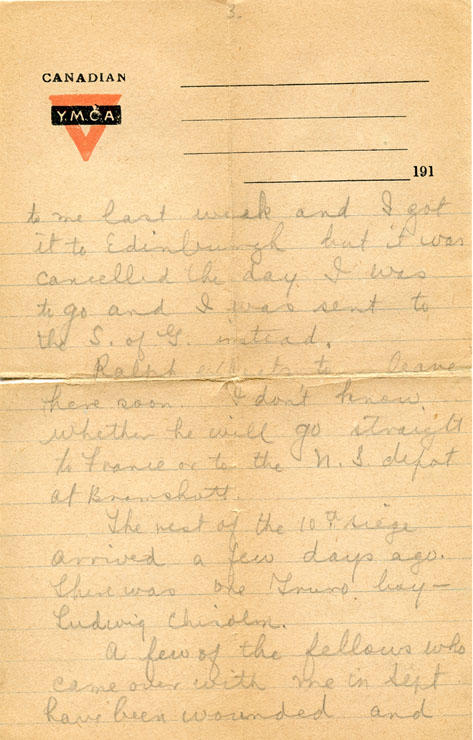 3.
CANADIAN
Y.M.C.A
191
to me last week and I got
it to Edinburgh but it was
cancelled the day I was
to go and I was sent to
the S. of G. instead.
Ralph expects to leave
here soon. I don't know
whether he will go straight
to France or to the N.S. depot
at Bramshott.
The rest of the 10th siege
arrived a few days ago.
There was one Truro boy —
Ludwig Chisolm.
A few of the fellows who
came over with me in Sept
have been wounded and